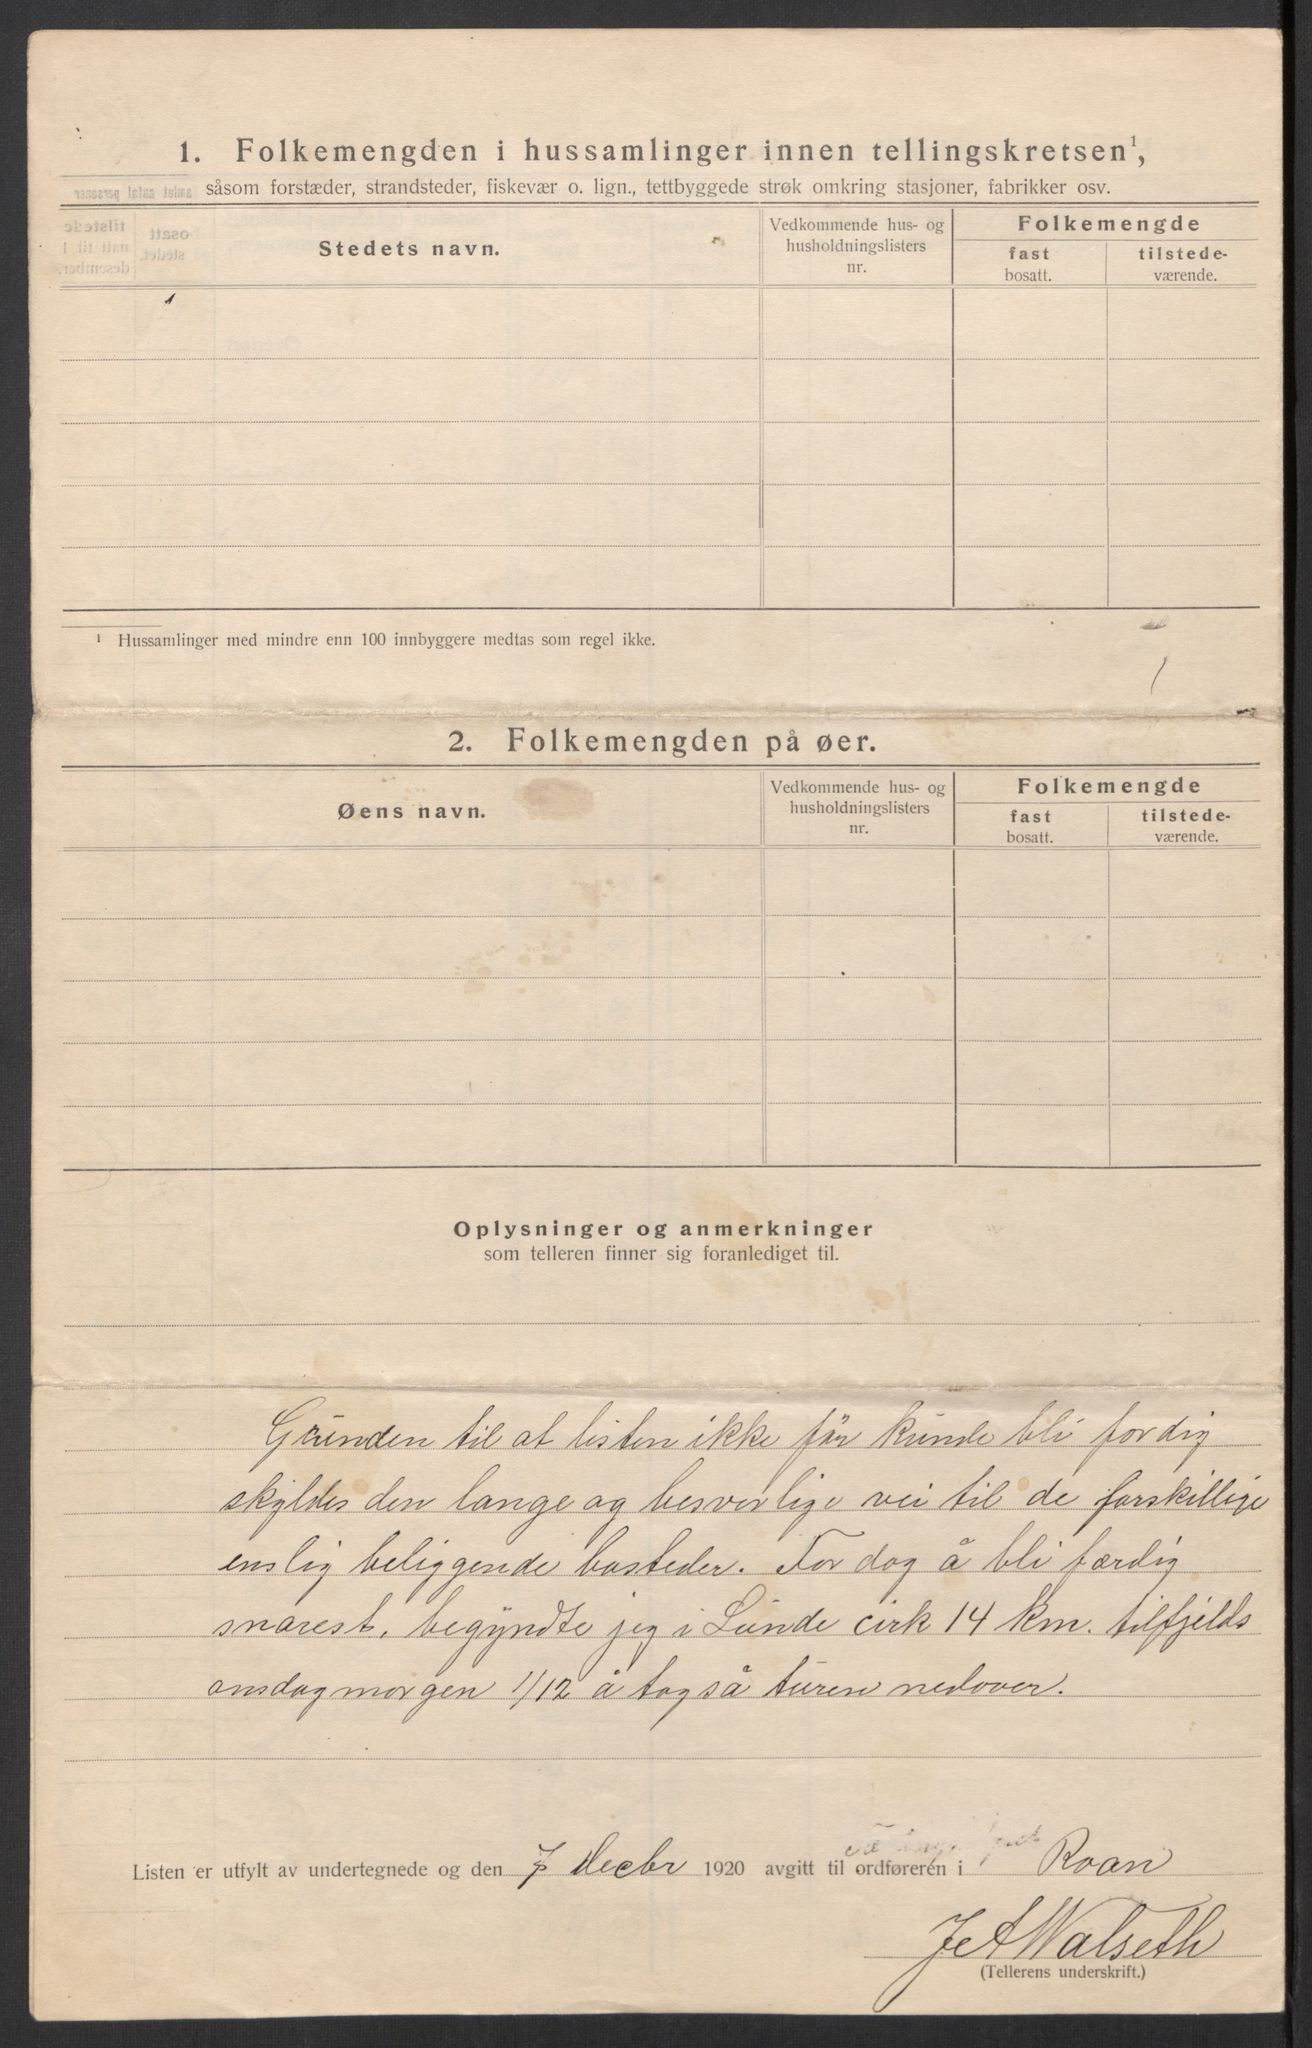 1. Folkemengden i hussamlinger innen tellingskretsen¹,
såsom forstæder, strandsteder, fiskevær o. lign., tettbyggede strøk omkring stasjoner, fabrikker osv.
Stedets navn.
Vedkommende hus- og
husholdningslisters
nr.
Folkemengde
fast
bosatt.
tilstede-
værende.
¹ Hussamlinger med mindre enn 100 innbyggere medtas som regel ikke.
2. Folkemengden på øer.
Øens navn.
Vedkommende hus- og
husholdningslisters
nr.
Folkemengde
fast
bosatt.
tilstede-
værende.
Oplysninger og anmerkninger
som telleren finner sig foranlediget til.
Grunden til at listen ikke før kunde bli fordig
skyldes den lange og besverlige vei til de forskillige
enslig beliggende bosteder. For dog å bli færdig
snarest, begyndte jeg i Lunde cirk 14 km. tilfjelds
onsdagmorgen 1/12 å tog så turen nedover.
Listen er utfylt av undertegnede og den 7 Decbr 1920 avgitt til ordføreren i Roan
J A Walseth
(Tellerens underskrift.)